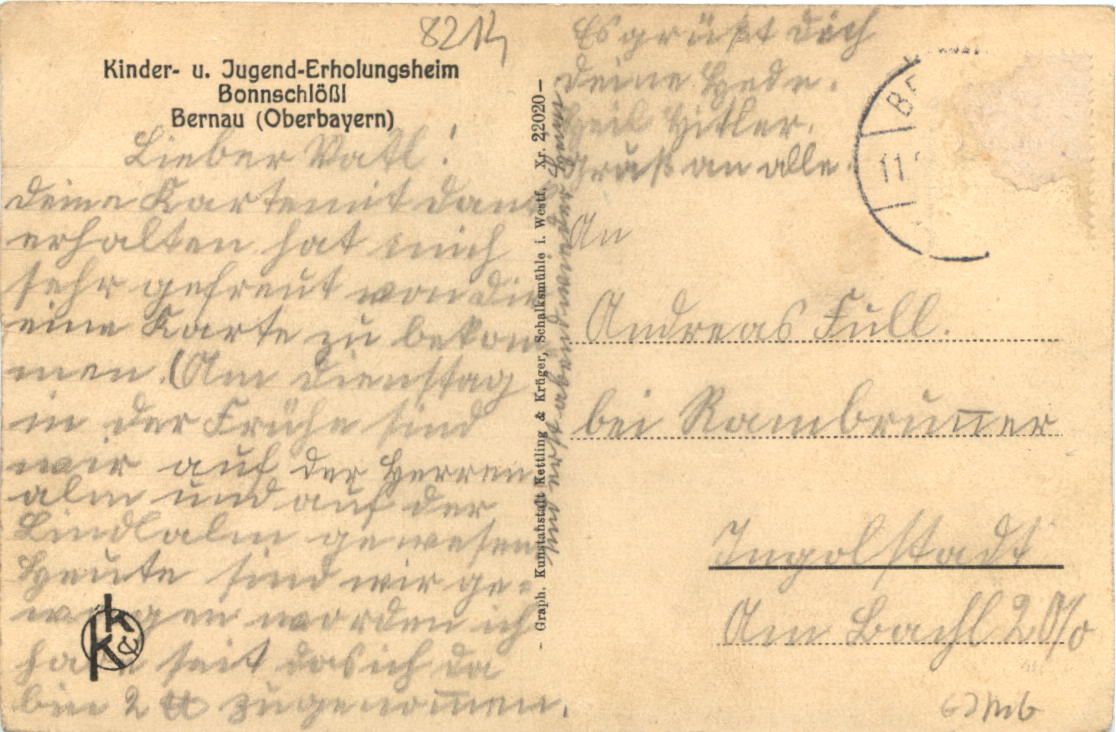 8214
Kinder- u. Jugend-Erholungsheim
Bonnschlößl
Bernau (Oberbayern)
Lieber Vatl!
deine Karte mit dank
erhalten hat mich
sehr gefreut von dir
eine Karte zu bekom
men. (Am Dienstag
in der Frühe sind
wir auf der Herren
alm und auf der
Lindlalm gewesen
Heute sind wir ge-
wogen worden ich
habe seit das ich da
bin 2 ℔ zugenom̅en.
und erst abend wieder heim
- Graph. Kunstanstalt Kettling & Krüger, Schalksmühle i. Westf. Nr. 22020 -
Es grüßt dich
deine Hede.
Heil Hitler.
Gruß an alle.
BE
11.
An
Andreas Füll.
bei Rambrun̅er
Ingolstadt
Am Bachl 2 0/0
K & K